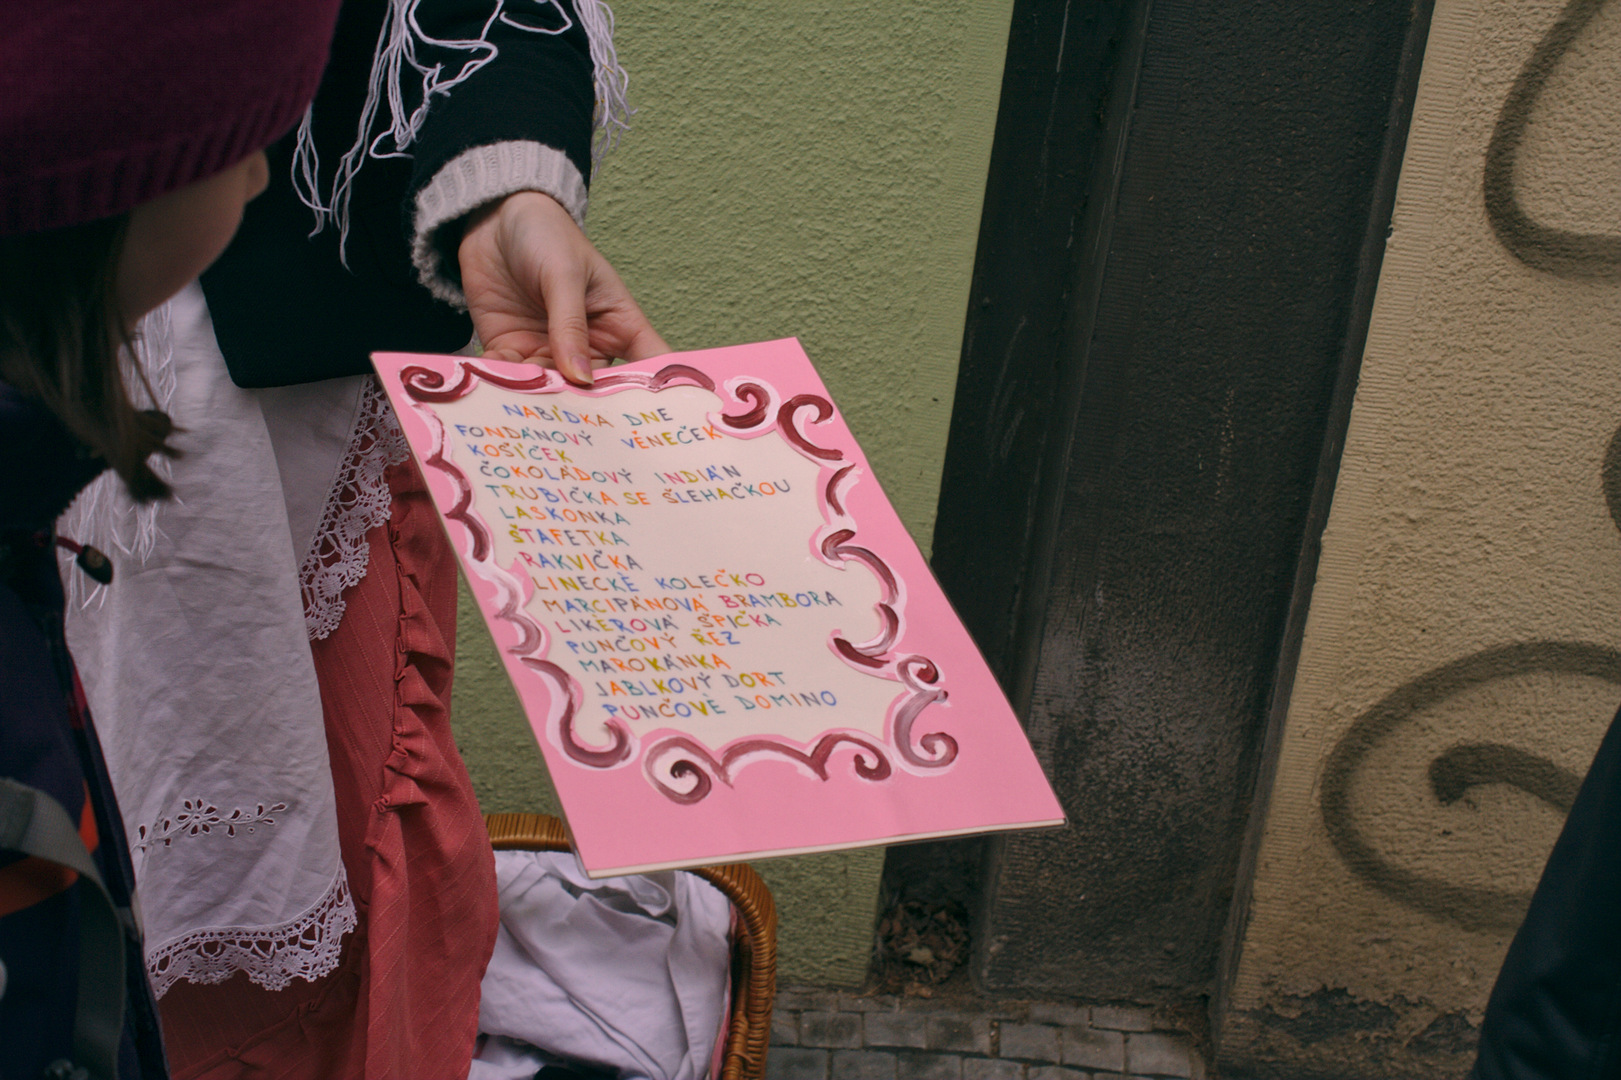 NABÍDKA DNE
FONDÁNOVÝ VĚNEČEK
KOŠÍČEK
ČOKOLÁDOVÝ INDIÁN
TRUBIČKA SE ŠLEHAČKOU
LASKONKA
ŠTAFETKA
RAKVIČKA
LINECKÉ KOLEČKO
MARCIPÁNOVÁ BRAMBORA
LIKÉROVÁ ŠPIČKA
PUNČOVÝ ŘEZ
MAROKÁNKA
JABLKOVÝ DORT
PUNČOVÉ DOMINO